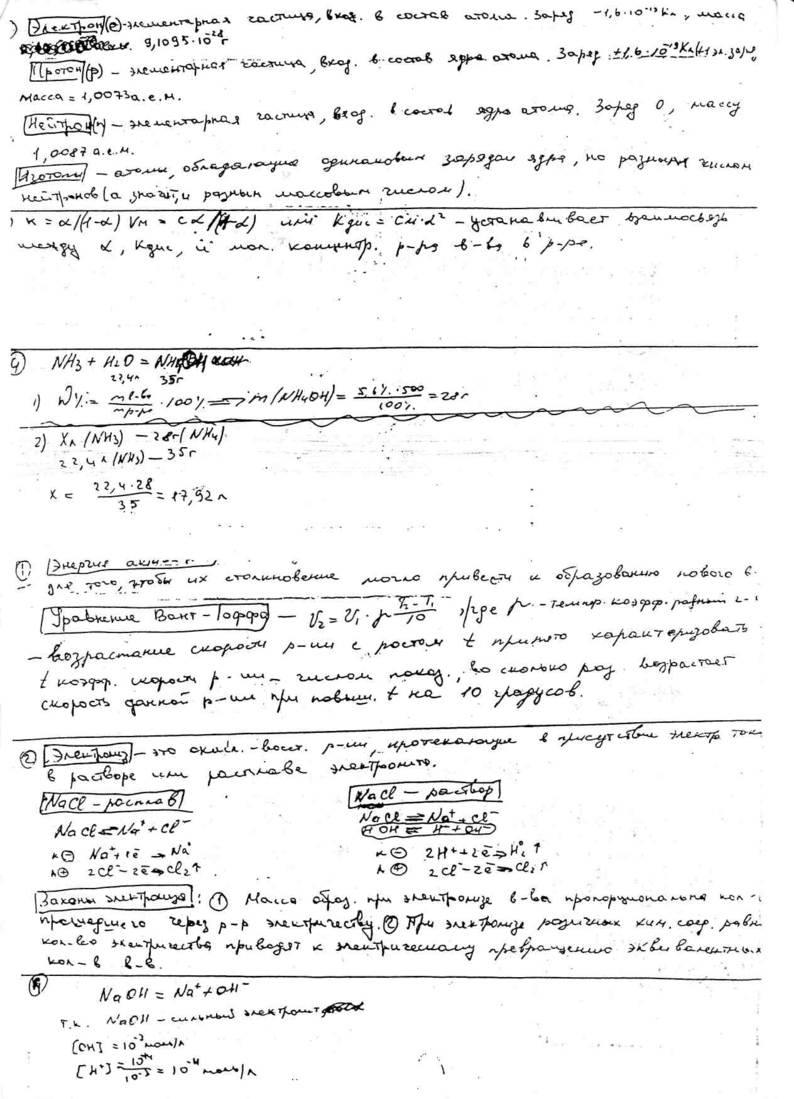 ) Электрон (е)-элементарная частица, вход. в состав атома. Заряд -1,6·10⁻¹⁹Кл, масса
9,1095·10⁻²⁸г
Протон (р) – элементарная частица, вход. в состав ядра атома. Заряд +1,6·10⁻¹⁹Кл(+1 эл.заряд,
масса = 1,0073а.е.м.
Нейтрон(n) – элементарная частица, вход. в состав ядра атома. Заряд 0, массу
1,0087 а.е.м.
Изотопы – атомы, обладающие одинаковым зарядом ядра, но разным числом
нейтронов (а значит, и разным массовым числом).
) к = α/(1-α) Vм = сα/(1-α) или Кдис = См·α² – устанавливает взаимосвязь
между α, Кдис, и мол. концентр. р-ря в-ва в р-ре.
4) NH₃ + H₂O = NH₄OH
22,4л 35г
1) W% = m в-ва / m р-ра · 100% => m(NH₄OH) = 5,6%·500 / 100% = 28г
2) Xл (NH₃) – 28г(NH₄)
22,4л (NH₃) – 35г
X = 22,4·28 / 35 = 17,92 л
1) Энергия
для того, чтобы их столкновение могло привести к образованию нового в.
Уравнение Вант-Гоффа – V₂ = V₁·γ^(T₂-T₁)/10, где γ. -темпр. коэфф. равный 2-
– возрастание скорости р-ии с ростом t принято характеризовать
t коэфф. скорости р-ии – числом показ., во сколько раз возрастает
скорость данной р-ии при повыш. t на 10 градусов.
2) Электролиз – это окисл.-восст. р-ии, протекающие в присутствии электр. ток
в растворе или расплаве электролита.
NaCl – расплав NaCl – раствор
NaCl ⇌ Na⁺ + Cl⁻ NaCl ⇌ Na⁺ + Cl⁻
HOH ⇌ H⁺ + OH⁻
к ⊖ Na⁺+1ē → Na⁰ к ⊖ 2H⁺+2ē → H₂⁰↑
А ⊕ 2Cl⁻-2ē → Cl₂↑ А ⊕ 2Cl⁻-2ē → Cl₂↑
Законы электролиза: ① Масса образ. при электролизе в-ва пропорциональна кол-
прошедшего через р-р электричеству. ② При электролизе различных хим. соед. равн
кол-во электричества приводят к электрическому превращению эквивалентных
кол-в в-в.
4) NaOH = Na⁺ + OH⁻
т.к. NaOH – сильный электролит
[OH] = 10⁻³ моль/л
[H⁺] = 10⁻¹⁴ / 10⁻³ = 10⁻¹¹ моль/л